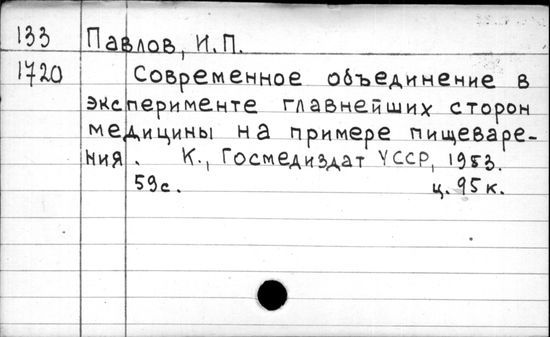 133 Павлов, И.П.
1720 Современное объединение в
эксперименте главнейших сторон
медицины на примере пищеваре-
ния. К., Госмедиздат УССР, 1953.
59с. ц. 95к.